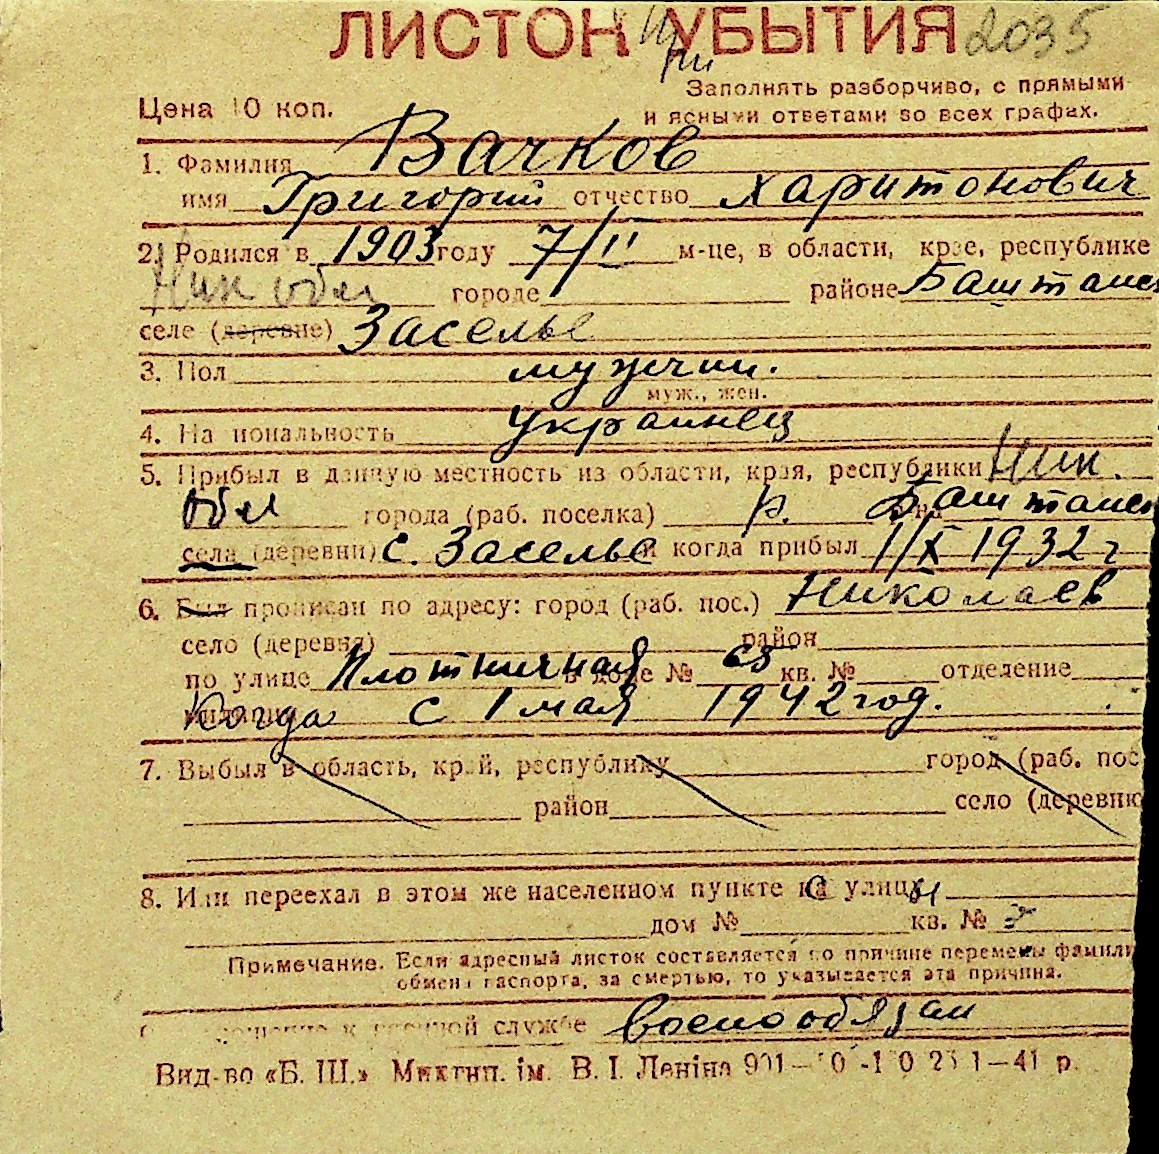 ЛИСТОК УБЫТИЯ 2035
Заполнять разборчиво, с прямыми
Цена 10 коп. и ясными ответами во всех графах.
1. Фамилия Вачков
имя Григорий отчество Харитонович
2. Родился в 1903 году 7/II м-це, в области, крае, республике
Ник обл городе районе Баштанск
селе (деревне) Заселье
3. Пол мужчин.
муж., жен.
4. Национальность украинец
5. Прибыл в данную местность из области, края, республики Ник.
обл города (раб. поселка) р. Баштанск
села (деревни) с. Заселье и когда прибыл 1/X 1932 г
6. Был прописан по адресу: город (раб. пос.) Николаев
село (деревня) район
по улице Плотничная в доме № кв. № отделение
Когда с 1 мая 1942 год.
7. Выбыл в область, край, республику город (раб. пос
район село (деревню
8. Или переехал в этом же населенном пункте на улицу
дом № кв. №
Примечание. Если адресный листок составляется по причине перемены фамилии
обмена паспорта, за смертью, то указывается эта причина.
службе военообязан
Вид-во «Б. Ш.» Миктип. ім. В. І. Леніна 1—41 р.